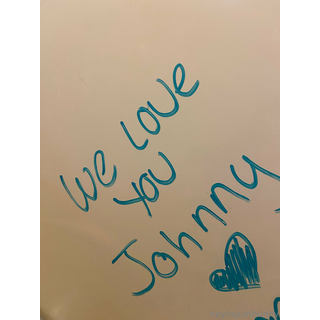 We Love
You
Johnny